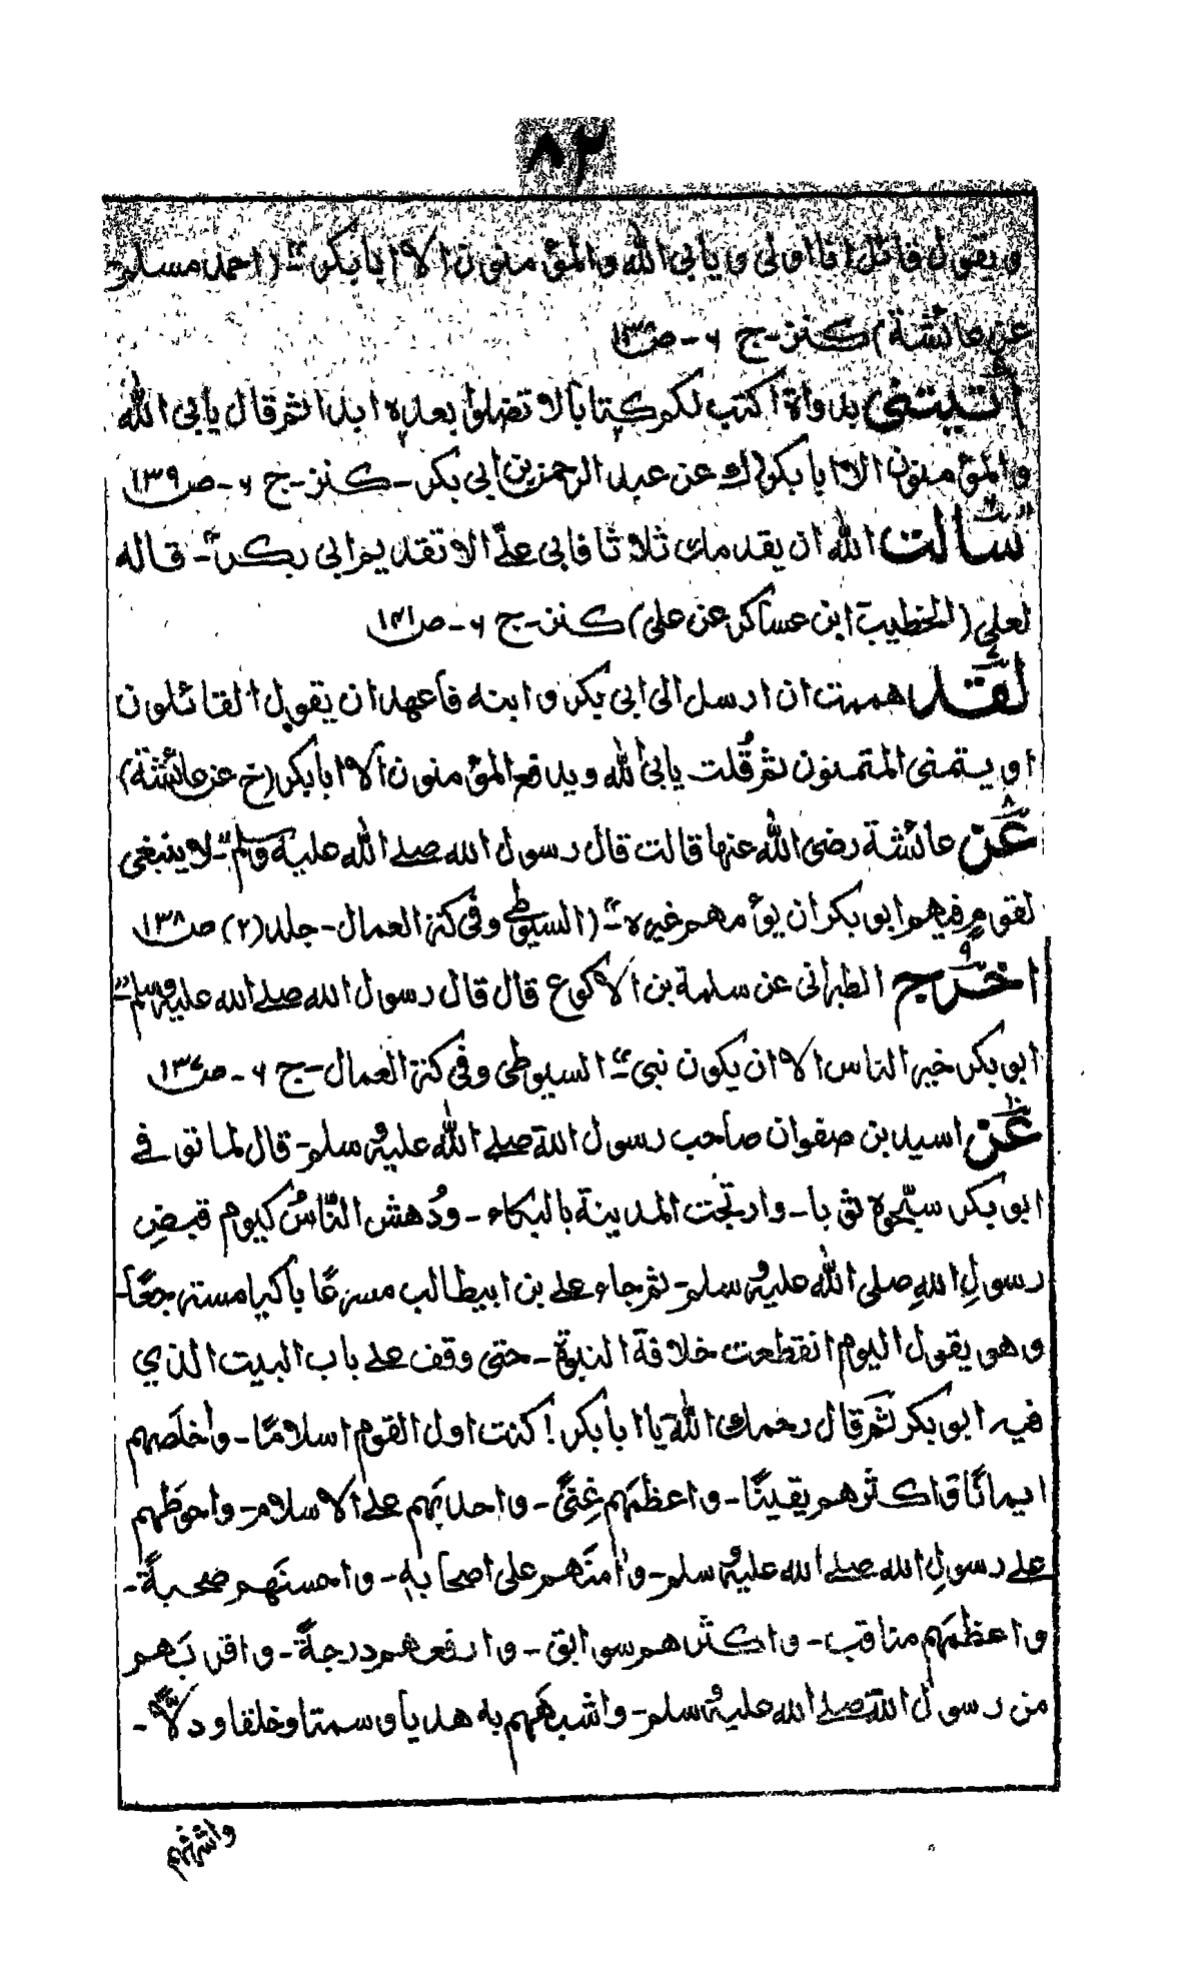 ٨٢
ويقول قائل انا اولى ويابى الله والمؤمنون الا ابابكر"- (احمد مسلم
عن عائشة) كنز- ج ٦ - ص١٣٨
ائتيتنى بدواة اكتب لكم كتابا لا تضلوا بعده ابدا ثم قال يابى الله
والمؤمنون الا ابابكر (ك عن عبد الرحمن بن ابى بكر - كنز - ج ٦ - ص١٣٩
سألت الله ان يقدمك ثلاثا فابى علىّ الا تقديم ابى بكر"- قاله
لعلى (الخطيب ابن عساكر عن على) كنز - ج ٦ - ص١٤١
لقد هممت ان ارسل الى ابى بكر وابنه فاعهد ان يقول القائلون
او يتمنى المتمنون ثم قُلت يابى الله ويدفع المؤمنون الا ابابكر (خ عن عائشة)
٨ عن عائشة رضى الله عنها قالت قال رسول الله صلے الله عليه وسلم "لا ينبغى
لقوم فيهم ابو بكر ان يؤمهم غيره"- (السيوطى وفى كنز العمال - جلد (٢) ص١٣٨
٩ اخرج الطبرانى عن سلمة بن الاكوع قال قال رسول الله صلے الله عليه وسلم "
ابو بكر خير الناس الا ان يكون نبى" السيوطى وفى كنز العمال - ج ٦ - ص١٣٧
١٠ عن اسيد بن صفوان صاحب رسول الله صلے الله عليه وسلم - قال لما توفے
ابو بكر سجّوه ثوبا - وارتجت المدينة بالبكاء - ودُهش النّاسُ كيوم قبضِ
رسولِ اللهِ صلى الله عليه وسلم - ثم جاء على بن ابيطالب مسرعًا باكيا مسترجعًا -
وهو يقول اليوم انقطعت خلافة النبوة - حتى وقف على باب البيت الذي
فيه ابو بكر ثم قال رحمك الله يا ابابكر! كنت اول القوم اسلامًا - واخلصهم
ايمانًا واكثرهم يقينًا - واعظمهم غِنىً - واحدبهم على الاسلام - واحوطهم
على رسولِ الله صلے الله عليه وسلم - وامنَهم على اصحابهِ - واحسنَهم صحبةً -
واعظمَهم مناقب - واكثرهم سوابق - وارفعهم درجةً - واقربَهم
من رسول الله صلے الله عليه وسلم - واشبههم به هديا وسمتا وخلقا ودلًا -
واشرفهم